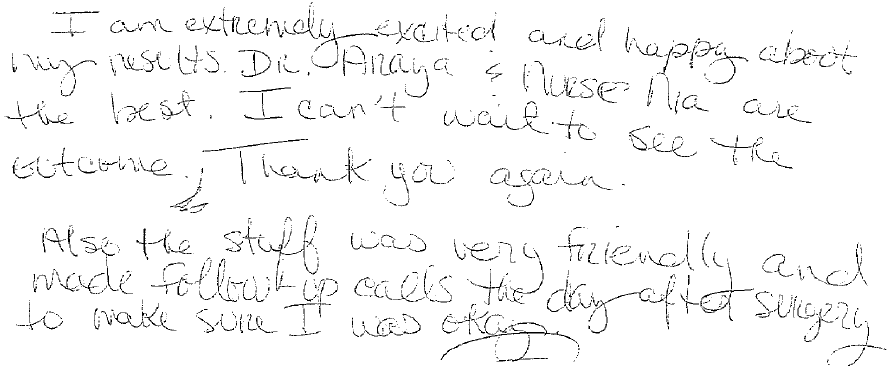 I am extremely excited and happy about
my results. Dr. Anaya & Nurse Nia are
the best. I can't wait to see the
outcome. Thank you again.
Also the staff was very friendly and
made follow-up calls the day after surgery
to make sure I was okay.